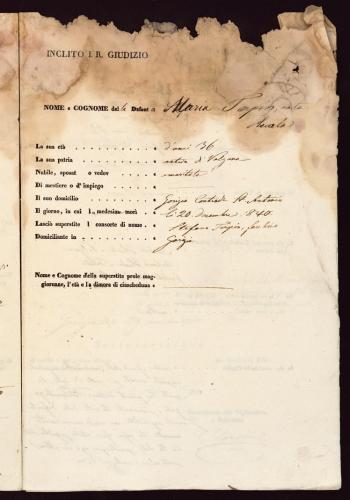 INCLITO I. R. GIUDIZIO
NOME e COGNOME del la Defunta Maria
La sua età d'anni 36
La sua patria nativa di
Nubile, sposat o vedov maritata
Di mestiere o d'impiego
Il suo domicilio Gorizia Contrada S. Antonio
Il giorno, in cui l medesim morì li 20 dicembre 1840
Lasciò superstite l consorte di nome Stefano
Domiciliante in Gorizia
Nome e Cognome della superstite prole mag-
giorenne, l'età e la dimora di ciascheduna